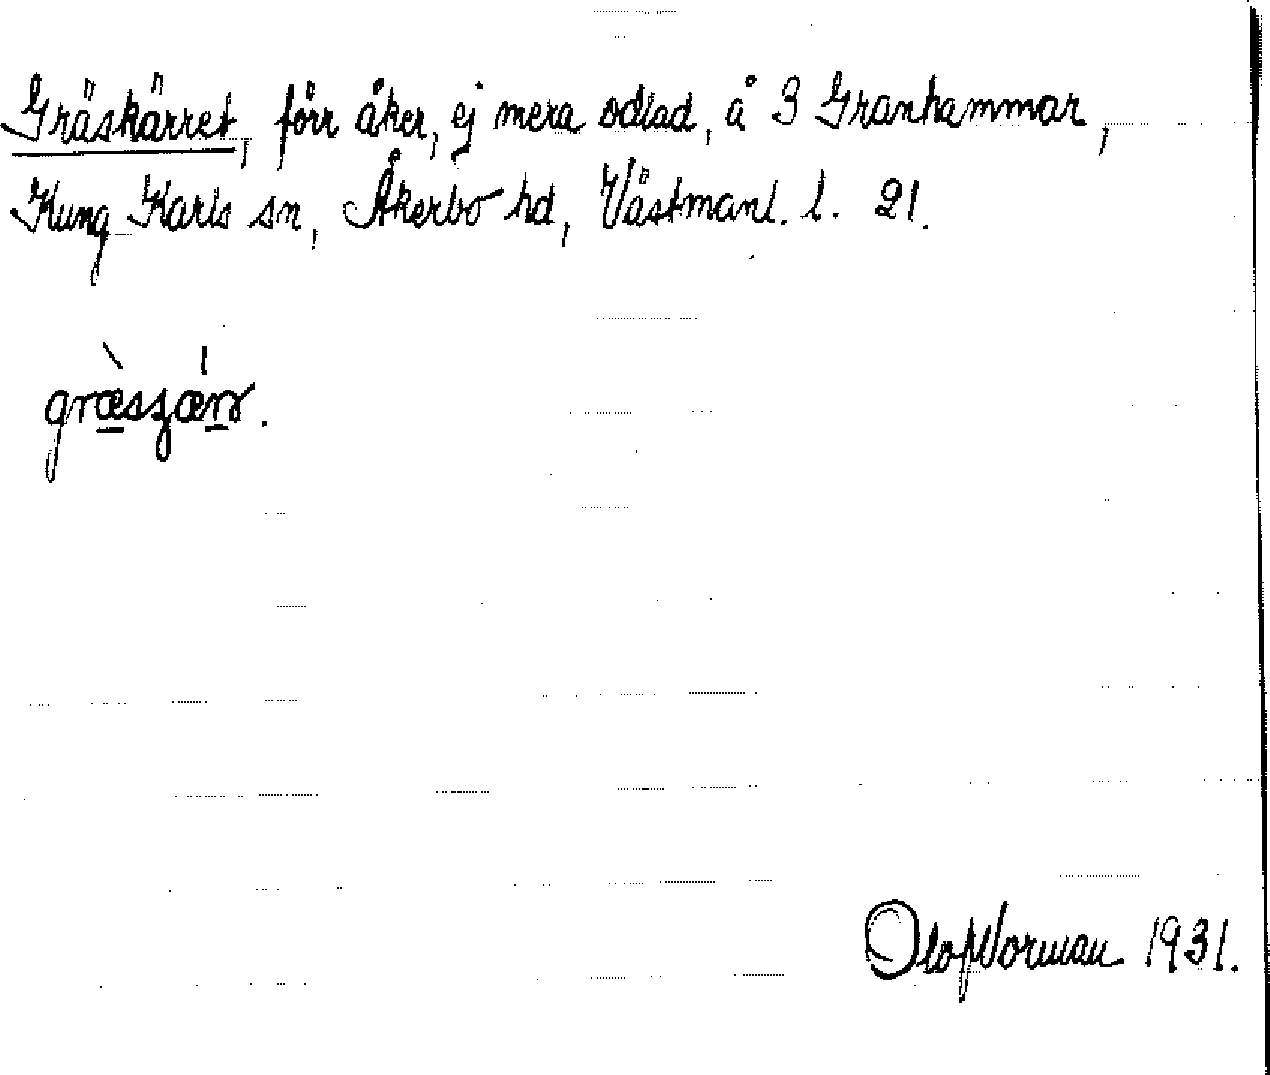 Gräskärret, förr åker, ej mera odlad, å 3 Granhammar,
Kung Karls sn, Åkerbo hd, Västmanl. l. 21.
græ̀szǽrr.
Olof Norman 1931.